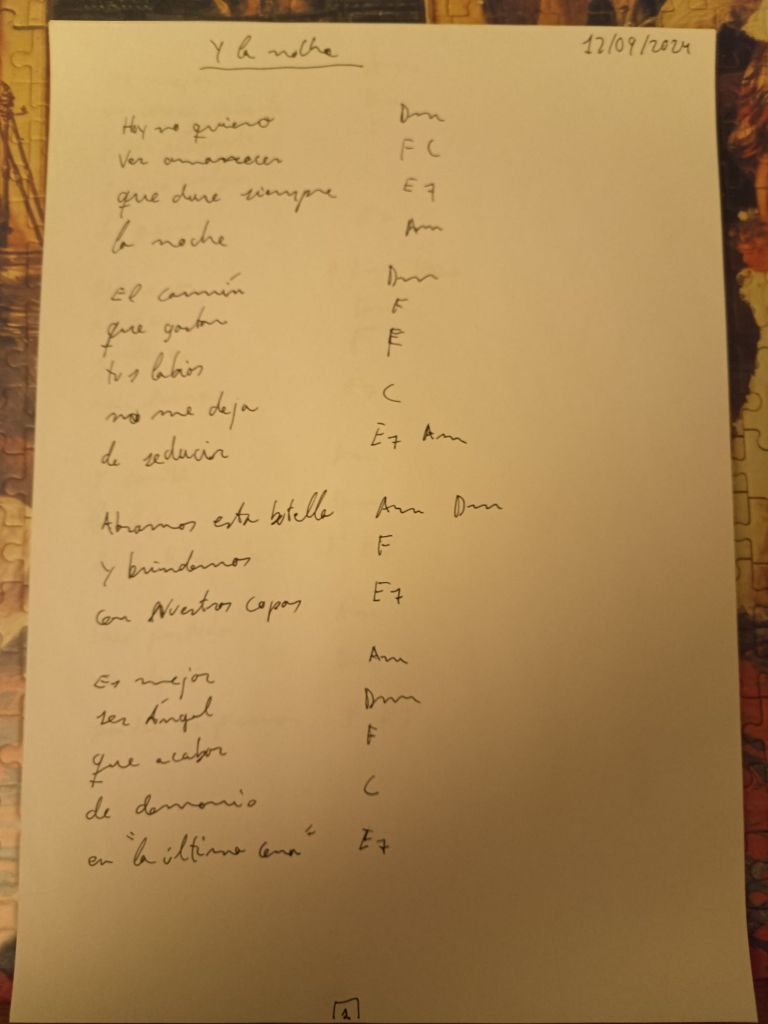 Y la noche
12/09/2024
Hoy no quiero Dm
Ver amanecer F C
que dure siempre E7
la noche Am
El carmín Dm
que gastan F
tus labios F
no me deja C
de seducir E7 Am
Abramos esta botella Am Dm
Y brindemos F
con Nuestras copas E7
Es mejor Am
ser Ángel Dm
que acabar F
de demonio C
en "la última cena" E7
1